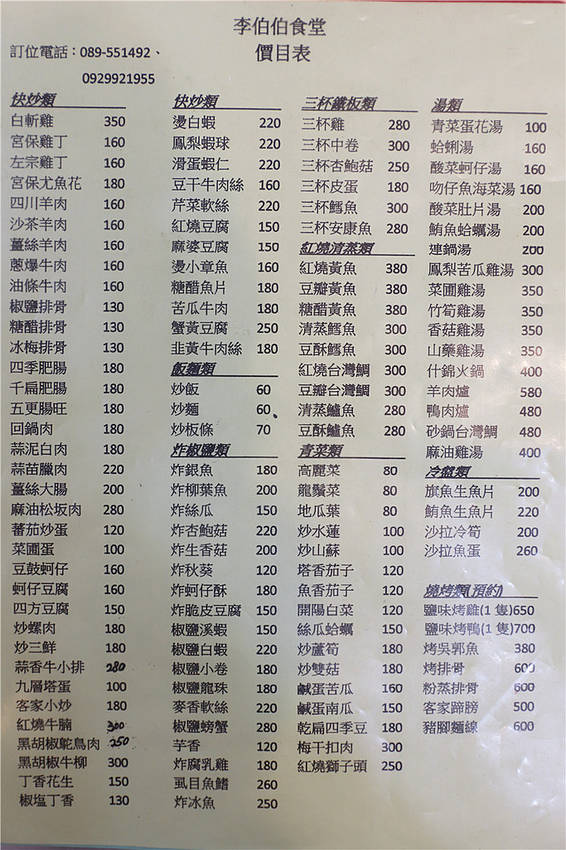 李伯伯食堂
訂位電話：089-551492、
價目表
0929921955
快炒類
白斬雞 350
宮保雞丁 160
左宗雞丁 160
宮保尤魚花 180
四川羊肉 160
沙茶羊肉 160
薑絲羊肉 160
蔥爆牛肉 160
油條牛肉 160
椒鹽排骨 130
糖醋排骨 130
冰梅排骨 130
四季肥腸 180
千扁肥腸 180
五更腸旺 180
回鍋肉 180
蒜泥白肉 180
蒜苗臘肉 220
薑絲大腸 200
麻油松坂肉 280
蕃茄炒蛋 120
菜圃蛋 100
豆鼓蚵仔 160
蚵仔豆腐 160
四方豆腐 150
炒螺肉 180
炒三鮮 180
蒜香牛小排 280
九層塔蛋 100
客家小炒 180
紅燒牛腩 300
黑胡椒鴕鳥肉 250
黑胡椒牛柳 300
丁香花生 150
椒塩丁香 130
快炒類
燙白蝦 220
鳳梨蝦球 220
滑蛋蝦仁 220
豆干牛肉絲 160
芹菜軟絲 220
紅燒豆腐 150
麻婆豆腐 150
燙小章魚 160
糖醋魚片 180
苦瓜牛肉 180
蟹黃豆腐 250
韭黃牛肉絲 180
飯麵類
炒飯 60
炒麵 60
炒板條 70
炸椒鹽類
炸銀魚 180
炸柳葉魚 200
炸絲瓜 150
炸杏鮑菇 220
炸生香菇 200
炸秋葵 120
炸蚵仔酥 180
炸脆皮豆腐 150
椒鹽溪蝦 150
椒鹽白蝦 220
椒鹽小卷 180
椒鹽龍珠 180
麥香軟絲 220
椒鹽螃蟹 280
芋香 120
炸腐乳雞 180
虱目魚鰭 260
炸冰魚 250
三杯鐵板類
三杯雞 280
三杯中卷 300
三杯杏鮑菇 250
三杯皮蛋 180
三杯鱈魚 300
三杯安康魚 280
紅燒清蒸類
紅燒黃魚 380
豆瓣黃魚 380
糖醋黃魚 380
清蒸鱈魚 300
豆酥鱈魚 300
紅燒台灣鯛 300
豆瓣台灣鯛 300
清蒸鱸魚 280
豆酥鱸魚 280
青菜類
高麗菜 80
龍鬚菜 80
地瓜葉 80
炒水蓮 100
炒山蘇 100
塔香茄子 120
魚香茄子 120
開陽白菜 120
絲瓜蛤蠣 150
炒蘆筍 180
炒雙菇 180
鹹蛋苦瓜 160
鹹蛋南瓜 150
乾扁四季豆 180
梅干扣肉 300
紅燒獅子頭 250
湯類
青菜蛋花湯 100
蛤蜊湯 160
酸菜蚵仔湯 160
吻仔魚海菜湯 160
酸菜肚片湯 200
鮪魚蛤蠣湯 200
連鍋湯 200
鳳梨苦瓜雞湯 300
菜圃雞湯 350
竹筍雞湯 350
香菇雞湯 350
山藥雞湯 350
什錦火鍋 400
羊肉爐 580
鴨肉爐 480
砂鍋台灣鯛 480
麻油雞湯 400
冷盤類
旗魚生魚片 200
鮪魚生魚片 220
沙拉冷筍 200
沙拉魚蛋 260
燒烤類(預約)
鹽味烤雞(1 隻)650
鹽味烤鴨(1 隻)700
烤吳郭魚 380
烤排骨 600
粉蒸排骨 600
客家蹄膀 500
豬腳麵線 600